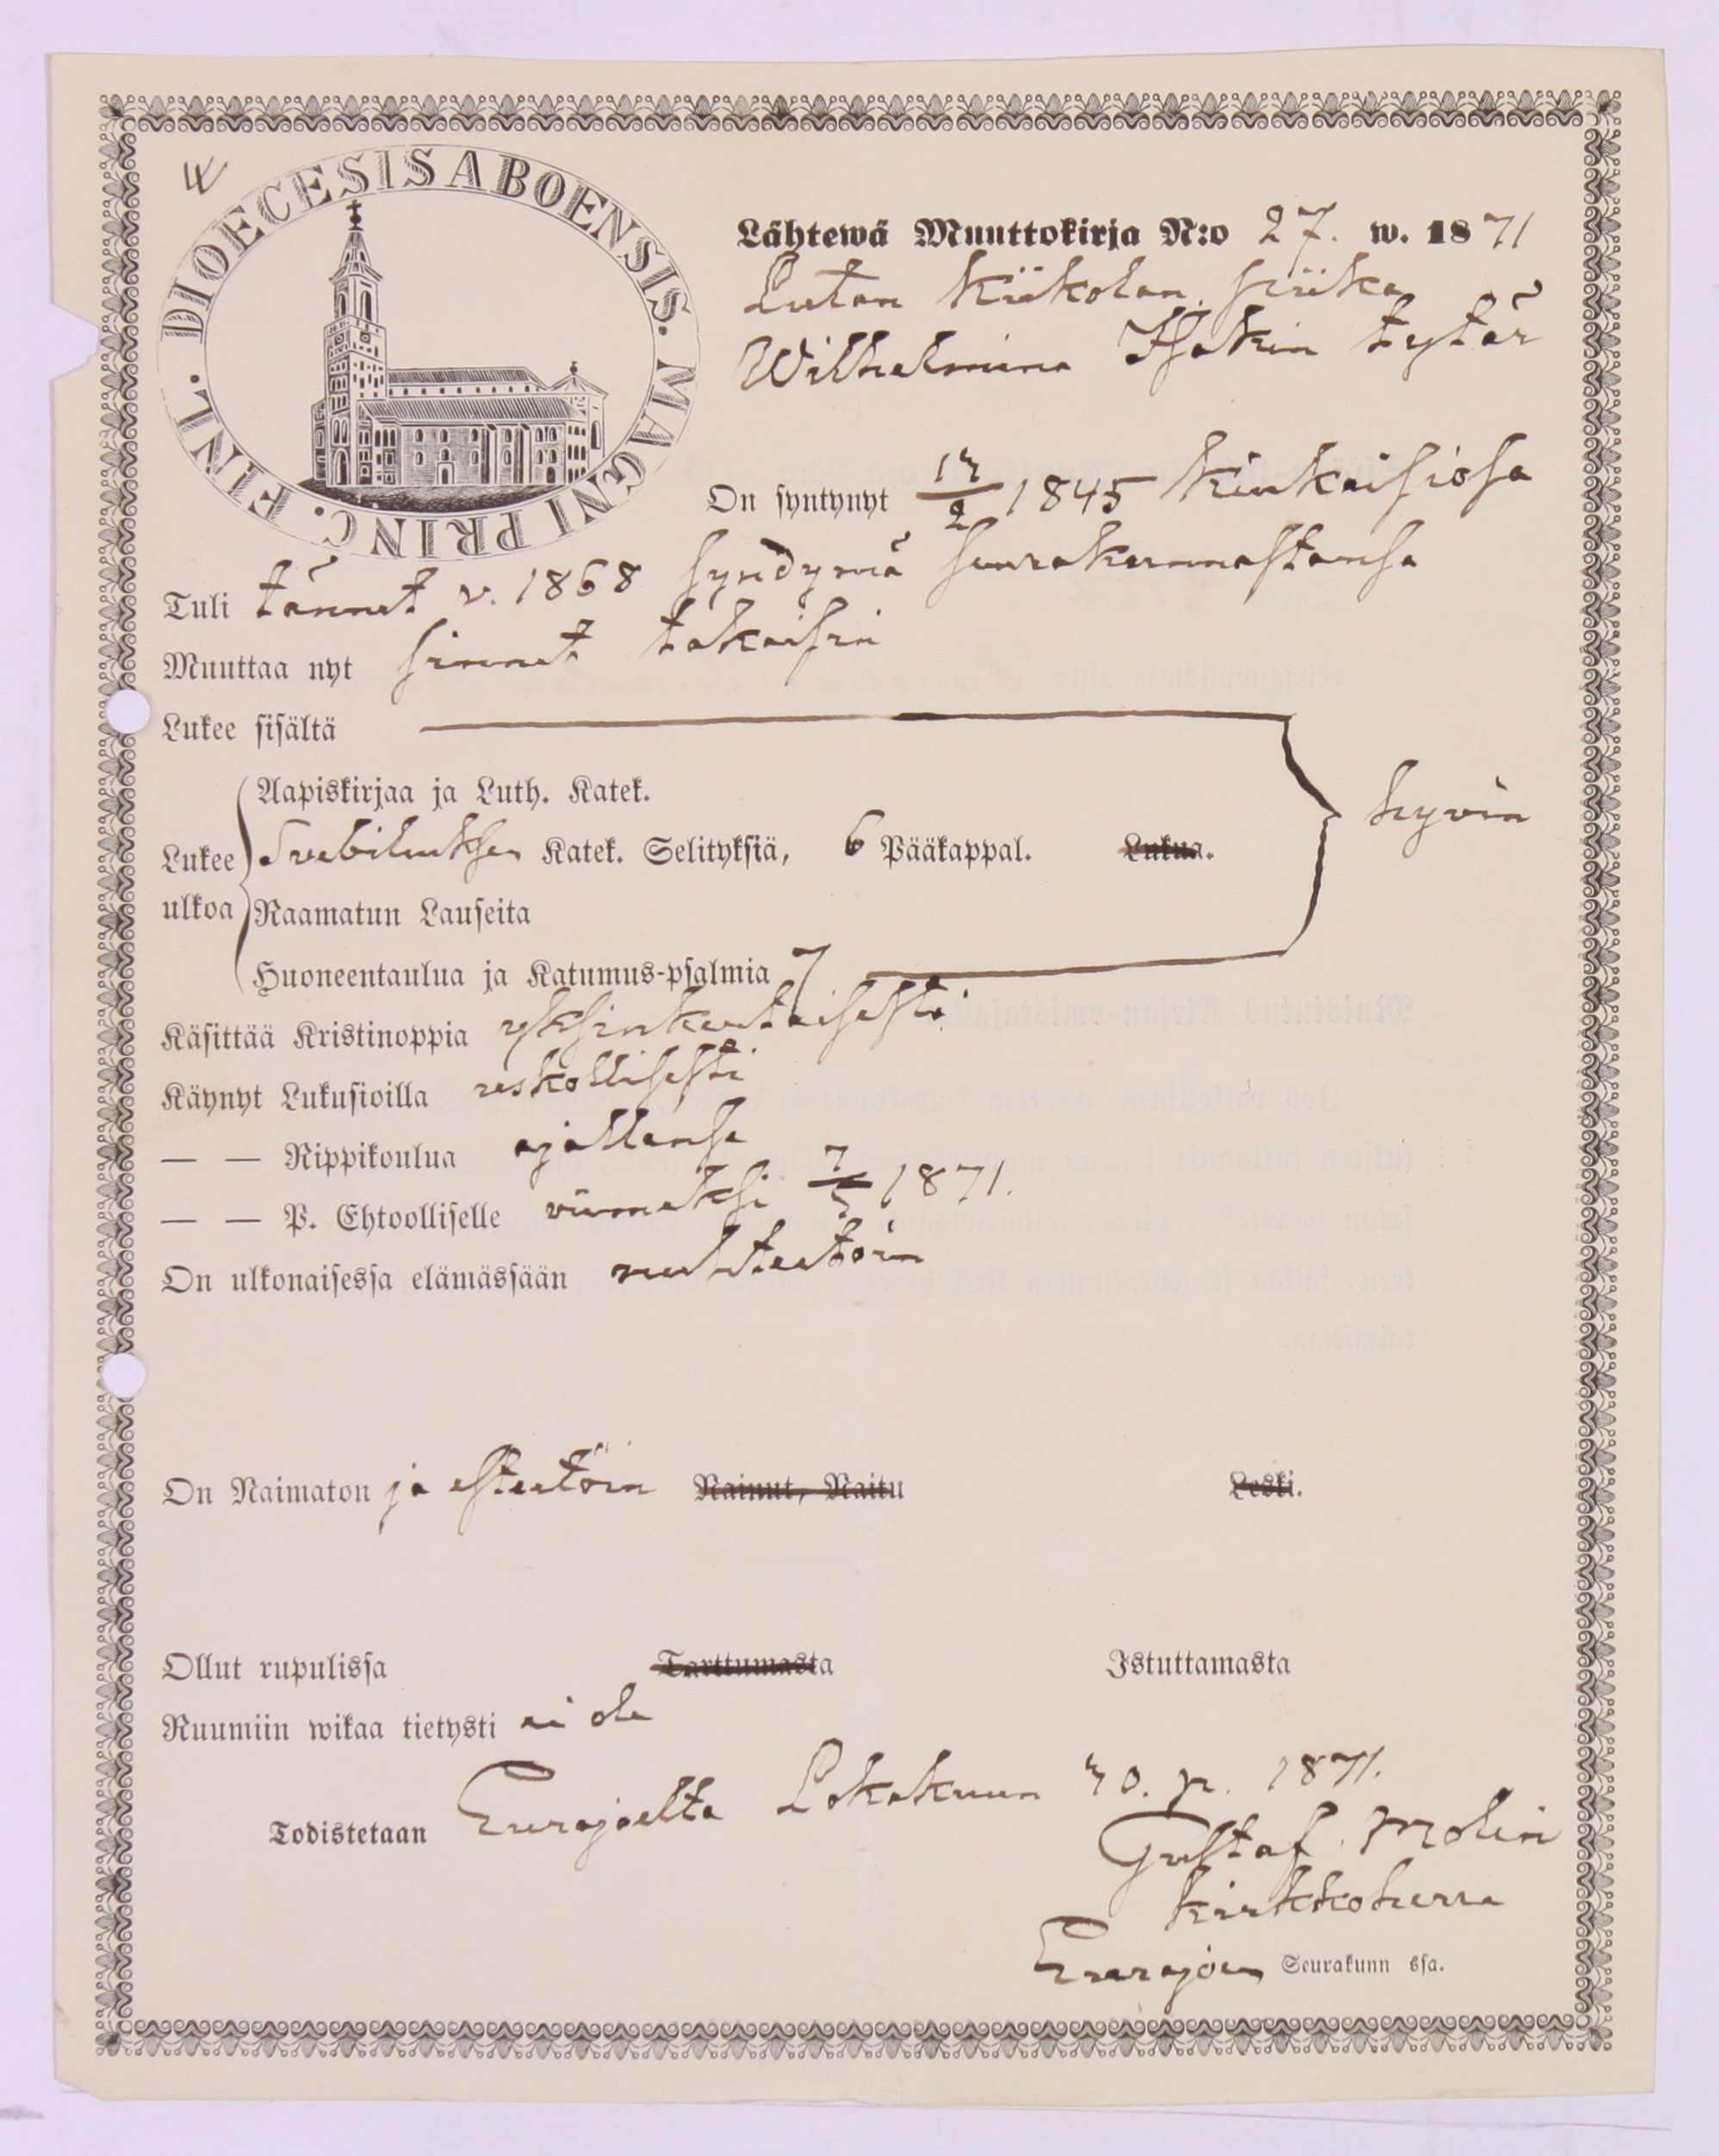 W
DIOECESIS ABOENSIS. MAGNI PRINC. FINL.
Lähtewä Muuttokirja N:o 27. w. 1871
Lutan Kiikolan piika
Wilhelmina Isakin tytär
On syntynyt 13/2 1845 Kiukaisisosa
Tuli tännet v. 1868 syndymä seurakunnastansa
Muuttaa nyt sinnet takaisin
Lukee sisältä
Aapiskirjaa ja Luth. Katek.
hyvin
Lukee Svebiliuksen Katek. Selityksiä, 6 Pääkappal. Lukua.
ulkoa Raamatun Lauseita
Huoneentaulua ja Katumus-psalmia 7
Käsittää Kristinoppia yksinkertaisesti
Käynyt Lukusioilla uskollisesti
— — Rippikoulua ajallansa
— — P. Ehtoolliselle viimeksi 7/5 1871.
On ulkonaisessa elämässään nuhteetoin
On Naimaton ja esteetöin Nainut, Naitu Leski.
Ollut rupulissa Tarttumasta Istuttamasta
Ruumiin wikaa tietysti ei ole
Todistetaan Eurajoelta Lokakuun 30. p. 1871.
Gustaf Molin
Kirkkoherra
Eurajoen Seurakunn ssa.